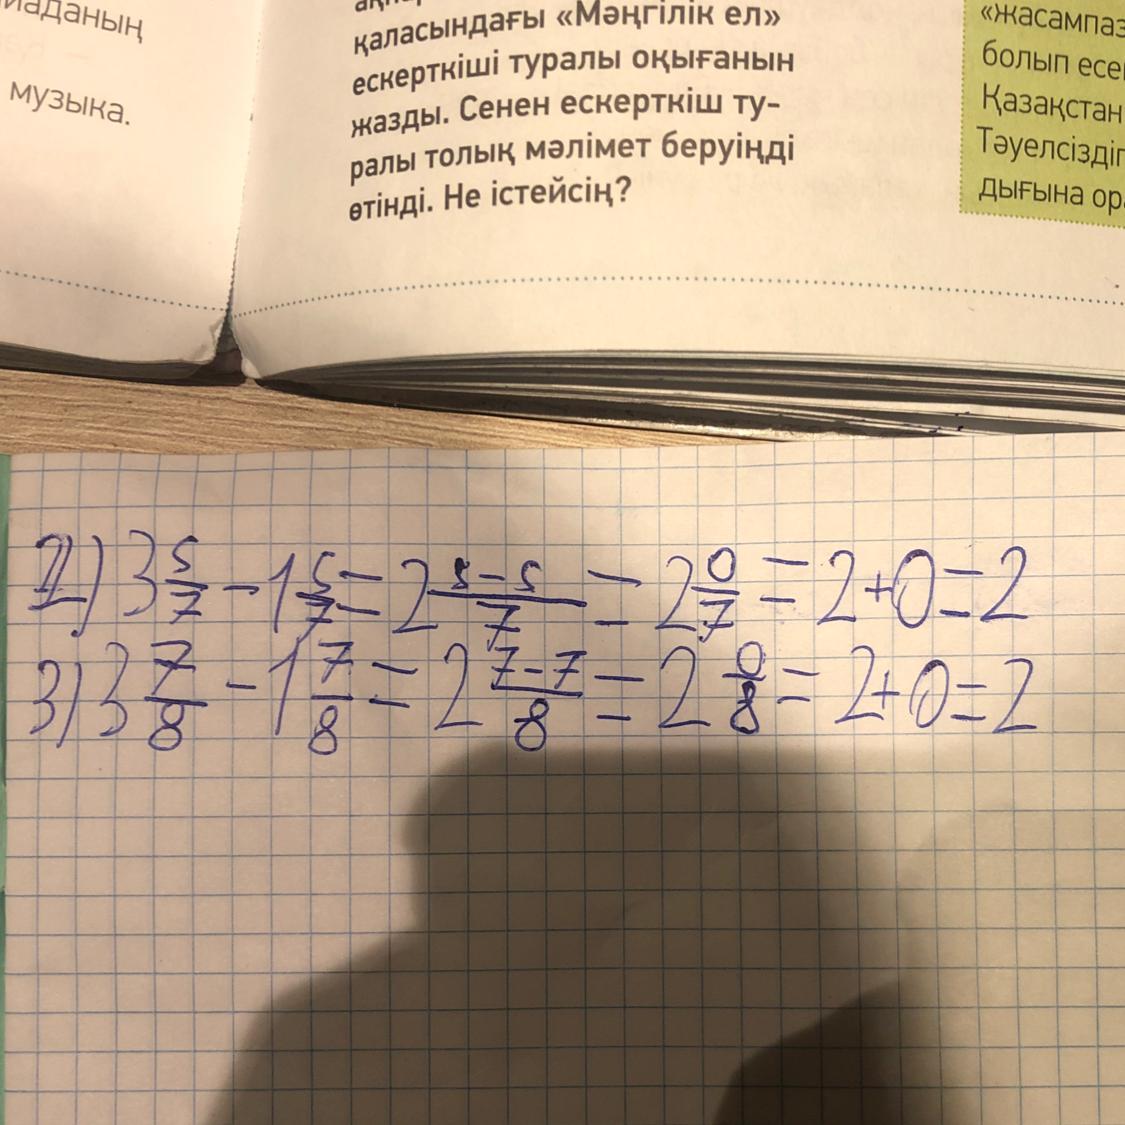 яаданың
музыка.
қаласындағы «Мәңгілік ел»
ескерткіші туралы оқығанын
жазды. Сенен ескерткіш ту-
ралы толық мәлімет беруіңді
өтінді. Не істейсің?
«жасампаз
болып есе
Қазақстан
Тәуелсіздіг
дығына ор
2) 3 5/7 - 1 5/7 = 2 5-5/7 = 2 0/7 = 2+0=2
3) 3 7/8 - 1 7/8 = 2 7-7/8 = 2 0/8 = 2+0=2